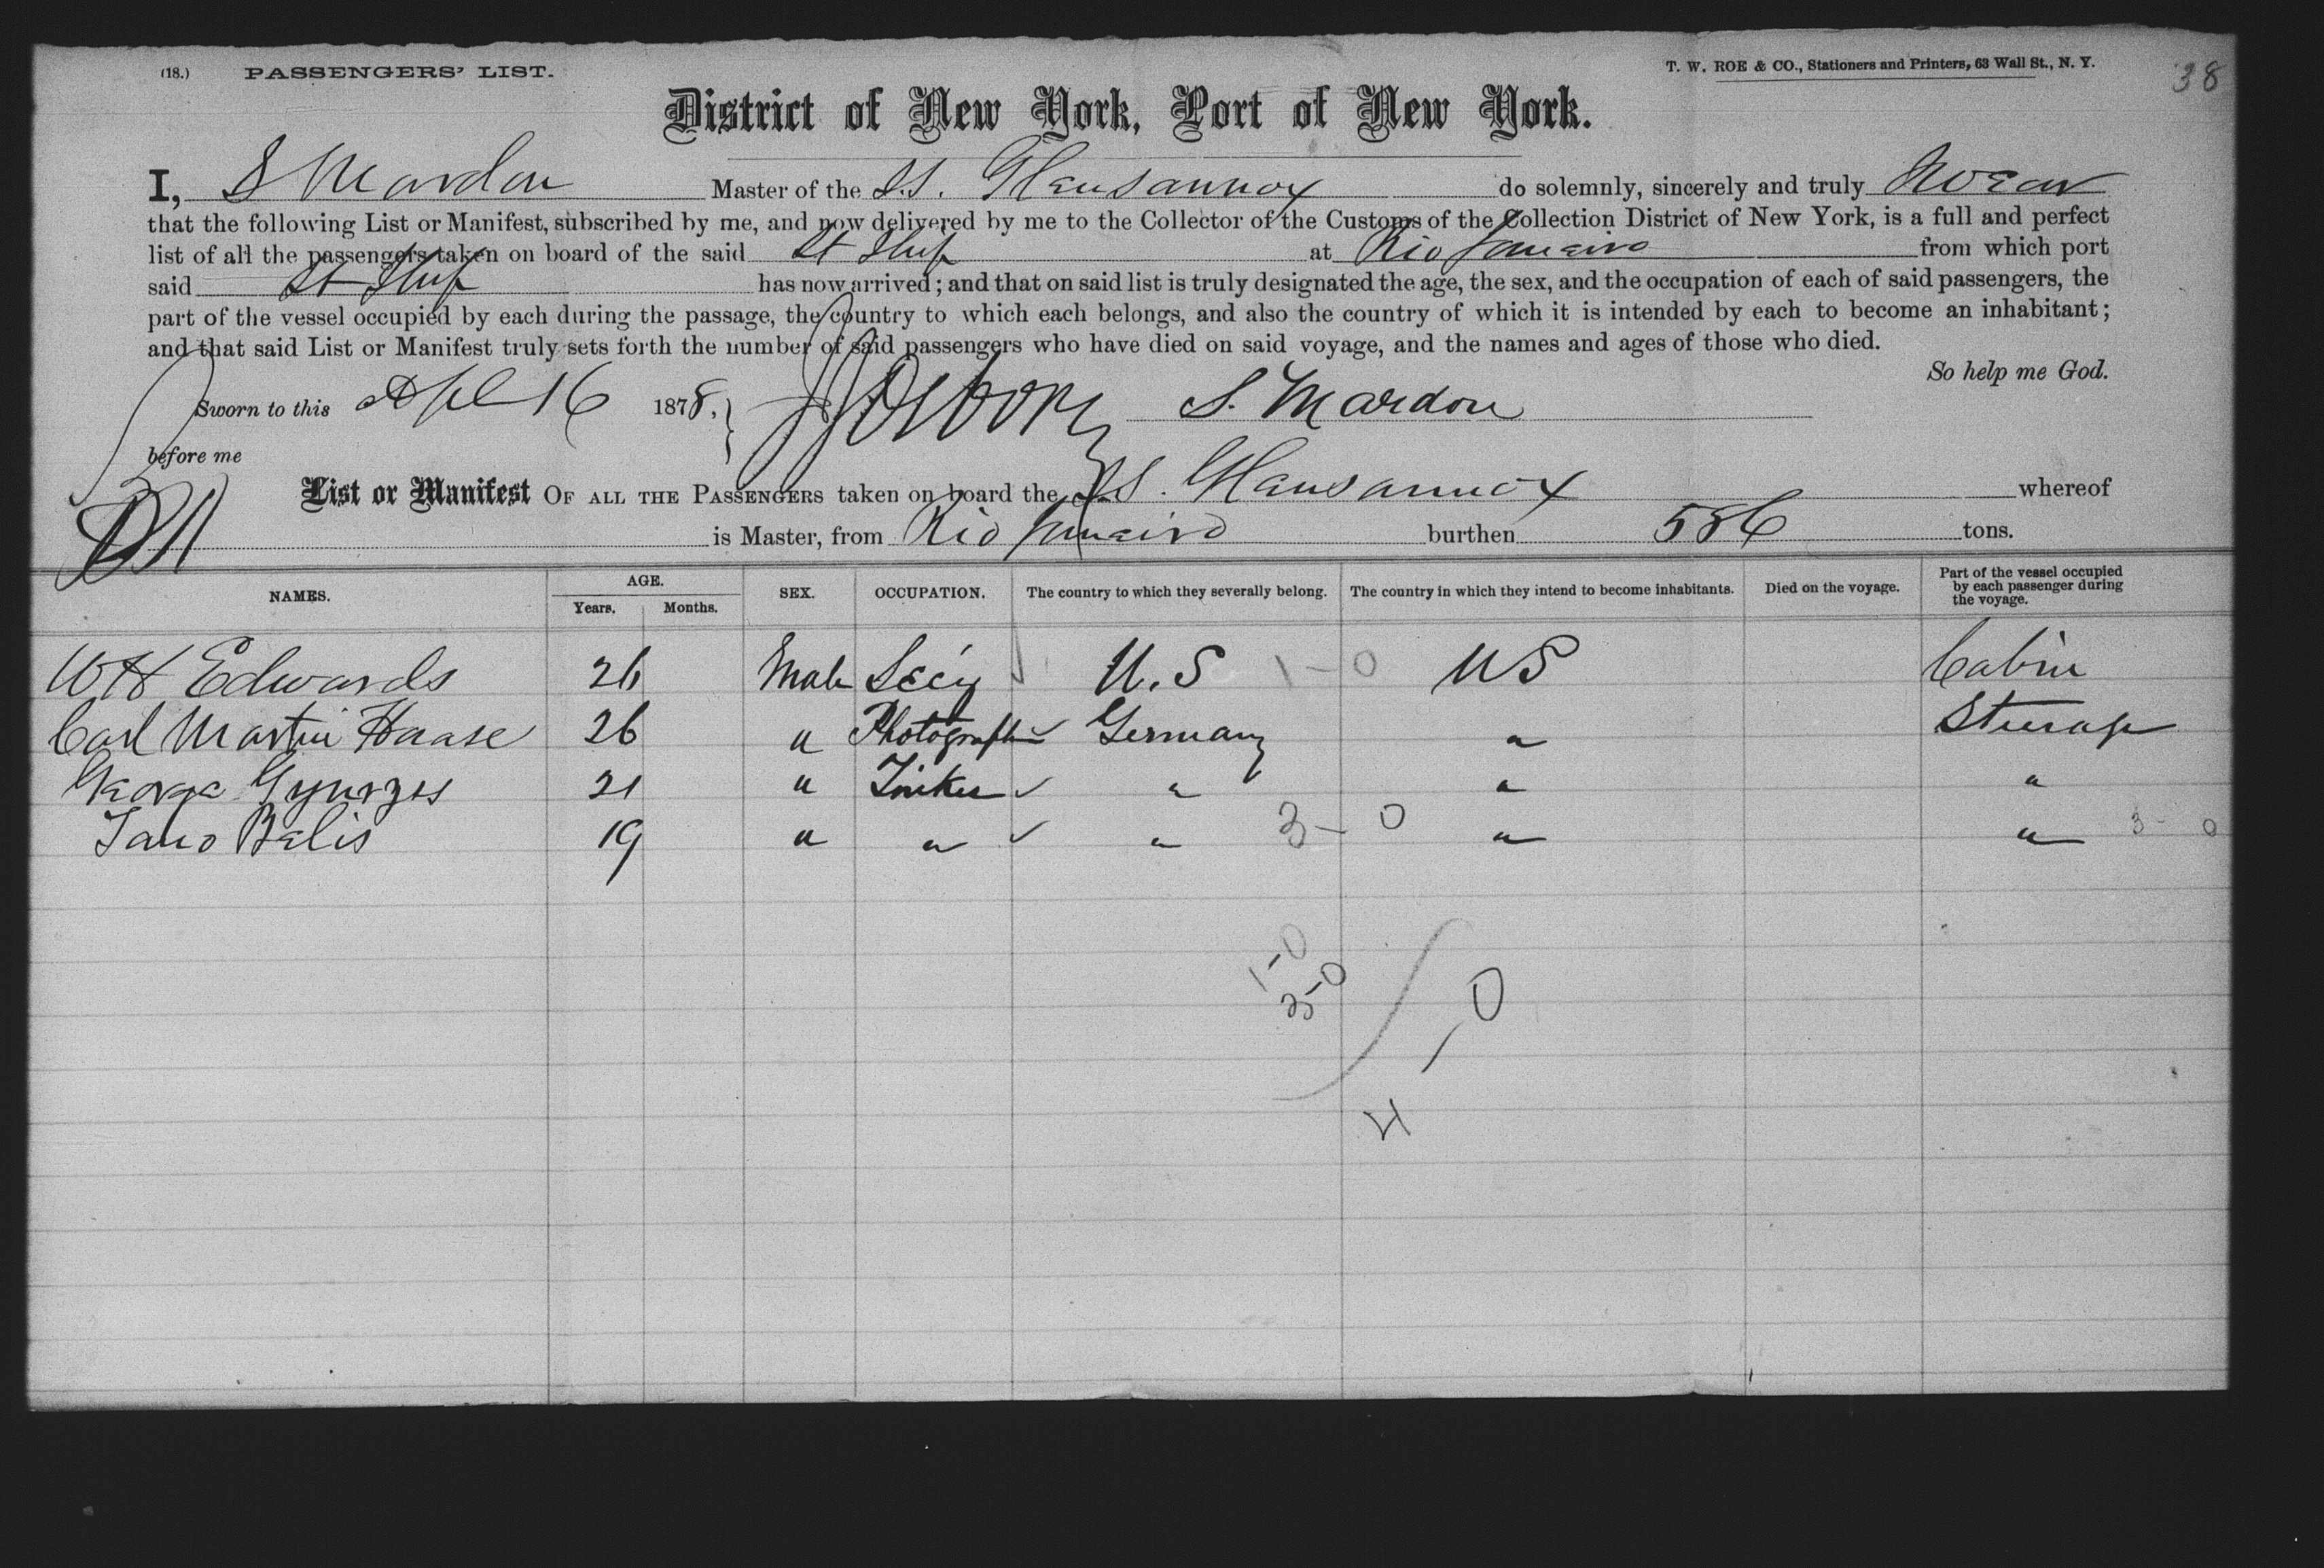 (18.) PASSENGERS' LIST.
T. W. ROE & CO., Stationers and Printers, 63 Wall St., N. Y.
38
District of New York, Port of New York.
I, S Mardon Master of the S.S. Glensannox do solemnly, sincerely and truly swear
that the following List or Manifest, subscribed by me, and now delivered by me to the Collector of the Customs of the Collection District of New York, is a full and perfect
list of all the passengers taken on board of the said St Ship at Rio Janeiro from which port
said St Ship has now arrived; and that on said list is truly designated the age, the sex, and the occupation of each of said passengers, the
part of the vessel occupied by each during the passage, the country to which each belongs, and also the country of which it is intended by each to become an inhabitant;
and that said List or Manifest truly sets forth the number of said passengers who have died on said voyage, and the names and ages of those who died.
So help me God.
Sworn to this Apl 16 1878, S. Mardon
before me
List or Manifest OF ALL THE PASSENGERS taken on board the S.S. Glensannox whereof
is Master, from Rio Janeiro burthen 586 tons.
NAMES. AGE. Years. Months. SEX. OCCUPATION. The country to which they severally belong. The country in which they intend to become inhabitants. Died on the voyage. Part of the vessel occupied by each passenger during the voyage.
W H Edwards 26 Male Secy U.S 1-0 US Cabin
Carl Martin Haase 26 " Photographer Germany " Steerage
21 " Tinker " " "
Balis 19 " " " 3-0 " " 3-0
1-0
3-0
4-0